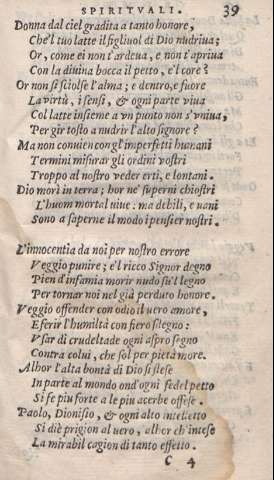 SPIRITVALI. 39
Donna dal ciel gradita a tanto honore,
Che'l tuo latte il figliuol di Dio nudriua;
Or, come ei non t'ardeua, e non t'apriua
Con la diuina bocca il petto, e'l core?
Or non si sciolse l'alma; e dentro, e fuore
La virtù, i sensi, & ogni parte viua
Col latte insieme a vn punto non s'vniua,
Per gir tosto a nudrir l'alto signore?
Ma non conuien con gl'imperfetti humani
Termini misurar gli ordini vostri
Troppo al nostro veder erti, e lontani.
Dio morì in terra; hor ne' superni chiostri
L'huom mortal uiue: ma debili, e uani
Sono a saperne il modo i pensier nostri.
L'innocentia da noi per nostro errore
Veggio punire; e'l ricco Signor degno
Pien d'infamia morir nudo su'l legno
Per tornar noi nel già perduto honore.
Veggio offender con odio il uero amore,
E ferir l'humiltà con fiero sdegno:
Vsar di crudeltade ogni aspro segno
Contra colui, che sol per pietà more.
Alhor l'alta bontà di Dio si stese
In parte al mondo ond'ogni fedel petto
Si fe piu forte a le piu acerbe offese.
Paolo, Dionisio, & ogni alto intelletto
Si diè prigion al uero, alhor ch'intese
La mirabil cagion di tanto effetto.
C 4